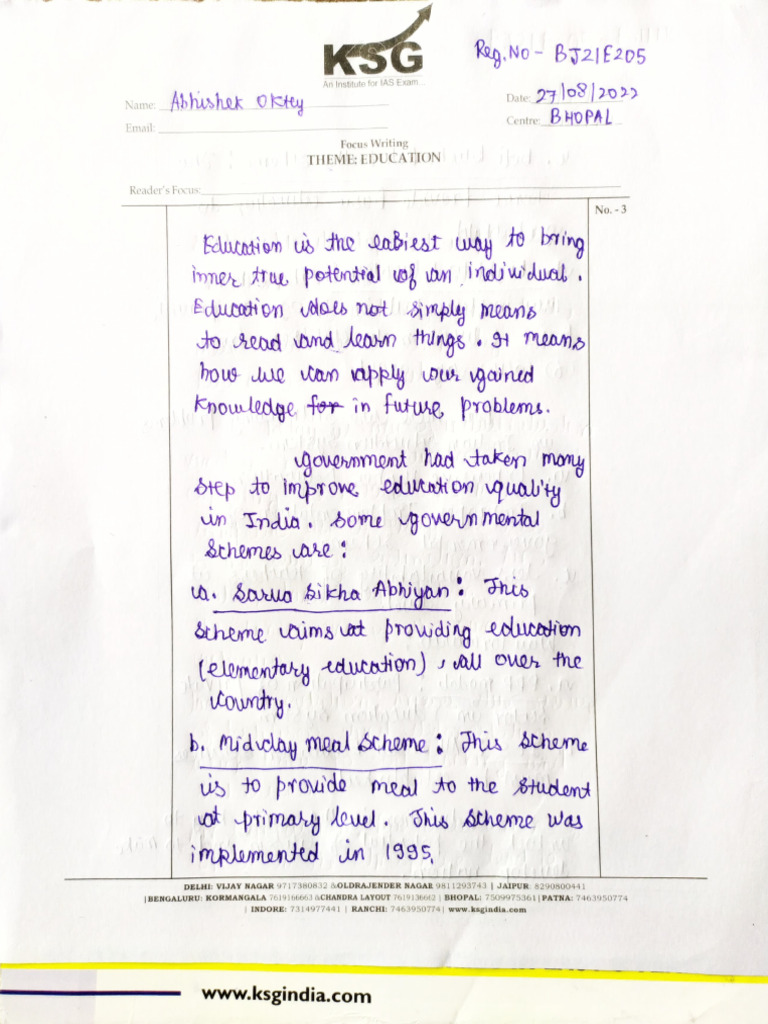 KSG
An Institute for IAS Exam...
Reg. No - BJ21E205
Name: Abhishek Oktey
Date: 27/08/2022
Email:
Centre: BHOPAL
Focus Writing
THEME: EDUCATION
Reader's Focus:
No. - 3
Education is the easiest way to bring
inner true potential of an individual.
Education does not simply means
to read and learn things. It means
how we can apply our gained
knowledge for in future problems.
government had taken many
step to improve education quality
in India. Some governmental
schemes are:
a. Sarva Sikha Abhiyan: This
scheme aims at providing education
(elementary education), all over the
country.
b. Midday meal scheme: This scheme
is to provide meal to the student
at primary level. This scheme was
implemented in 1995.
DELHI: VIJAY NAGAR 9717380832 &OLDRAJENDER NAGAR 9811293743 | JAIPUR: 8290800441
|BENGALURU: KORMANGALA 7619166663 &CHANDRA LAYOUT 7619136662 | BHOPAL: 7509975361|PATNA: 7463950774
| INDORE: 7314977441 | RANCHI: 7463950774| www.ksgindia.com
www.ksgindia.com